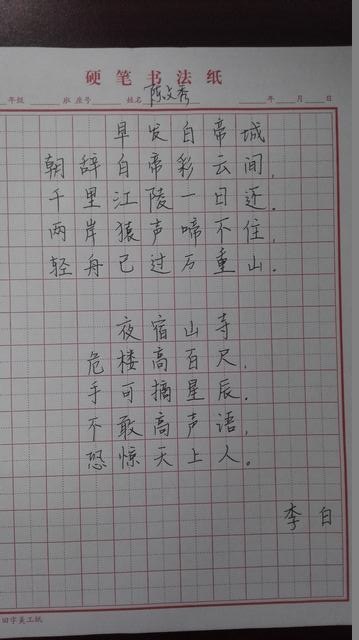 硬笔书法纸
年级 班 座号 姓名 陈文秀 年 月 日
早发白帝城
朝辞白帝彩云间,
千里江陵一日还.
两岸猿声啼不住,
轻舟已过万重山.
夜宿山寺
危楼高百尺,
手可摘星辰.
不敢高声语,
恐惊天上人。
李白
田字美工纸